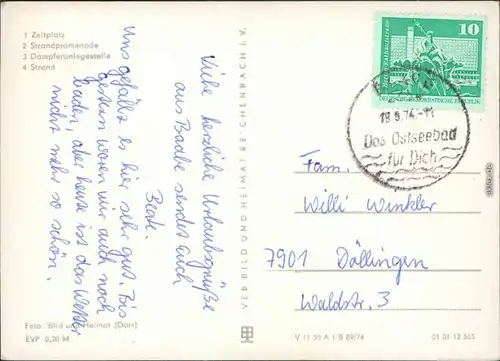 1 Zeltplatz
2 Strandpromenade
3 Dampferanlegestelle
4 Strand
Viele herzliche Urlaubsgrüße
aus Badbe sendet Euch
Beate.
Uns gefällt es hier sehr gut. Bis
gestern waren wir auch noch
baden, aber heute ist das Wetter
nicht mehr so schön.
Foto: Bild und Heimat (Darr)
EVP 0,20 M
VEB BILD UND HEIMAT REICHENBACH i. V.
10
DEUTSCHE DEMOKRATISCHE REPUBLIK
18.9.74-11
Das Ostseebad
für Dich
Fam.
Willi Winkler
7901 Döllingen
Waldstr. 3
V 11 50 A 1/B 69/74
01 01 12 365